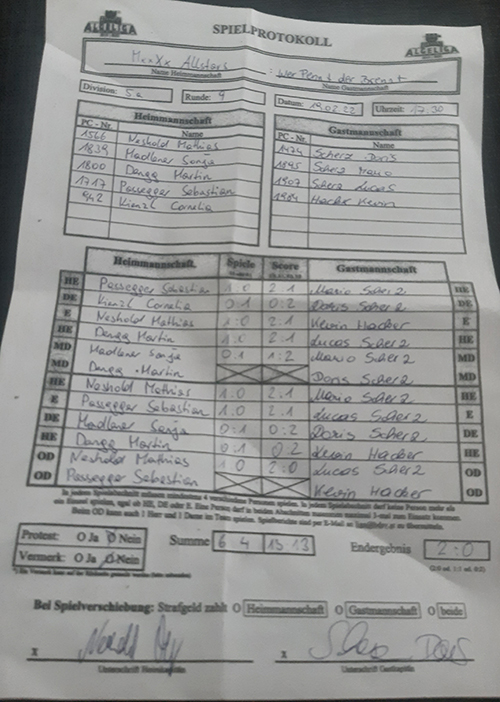 ALGELIGA
SPIELPROTOKOLL
ALGELIGA
MxxXx Allstars : Wer Pennt der Brennt
Name Heimmannschaft Name Gastmannschaft
Division: 5a Runde: 4 Datum: 19.02.22 Uhrzeit: 17.30
Heimmannschaft Gastmannschaft
PC - Nr. Name PC - Nr. Name
1566 Neshold Mathias 1474 Scherz Doris
1839 Madlener Sonja 1845 Scherz Mario
1800 Dangg Martin 1907 Scherz Lucas
1717 Passegger Sebastian 1984 Hacker Kevin
942 Kienzl Cornelia
Heimmannschaft Spiele Score Gastmannschaft
HE Passegger Sebastian 1:0 2:1 Mario Scherz HE
DE Kienzl Cornelia 0:1 0:2 Doris Scherz DE
E Neshold Mathias 1:0 2:1 Kevin Hacker E
HE Dangg Martin 1:0 2:1 Lucas Scherz HE
MD Madlener Sonja 0:1 1:2 Mario Scherz MD
MD Dangg Martin Doris Scherz MD
HE Neshold Mathias 1:0 2:1 Mario Scherz HE
E Passegger Sebastian 1:0 2:1 Lucas Scherz E
DE Madlener Sonja 0:1 0:2 Doris Scherz DE
HE Dangg Martin 0:1 0:2 Kevin Hacker HE
OD Neshold Mathias 1:0 2:0 Lucas Scherz OD
OD Passegger Sebastian Kevin Hacker OD
In jedem Spielabschnitt müssen mindestens 4 verschiedene Personen spielen. In jedem Spielabschnitt darf keine Person mehr als
ein Einzel spielen, egal ob HE, DE oder E. Eine Person darf in beiden Abschnitten zusammen maximal 3-mal zum Einsatz kommen.
Beim OD kann auch 1 Herr und 1 Dame im Team spielen. Spielberichte sind per E-Mail an
Protest: O Ja O Nein Summe 6:4 13:13 Endergebnis 2:0
Vermerk: O Ja O Nein
Bei Spielverschiebung: Strafgeld zahlt O Heimmannschaft O Gastmannschaft O beide
x x Scherz Doris
Unterschrift Heimkapitän Unterschrift Gastkapitän